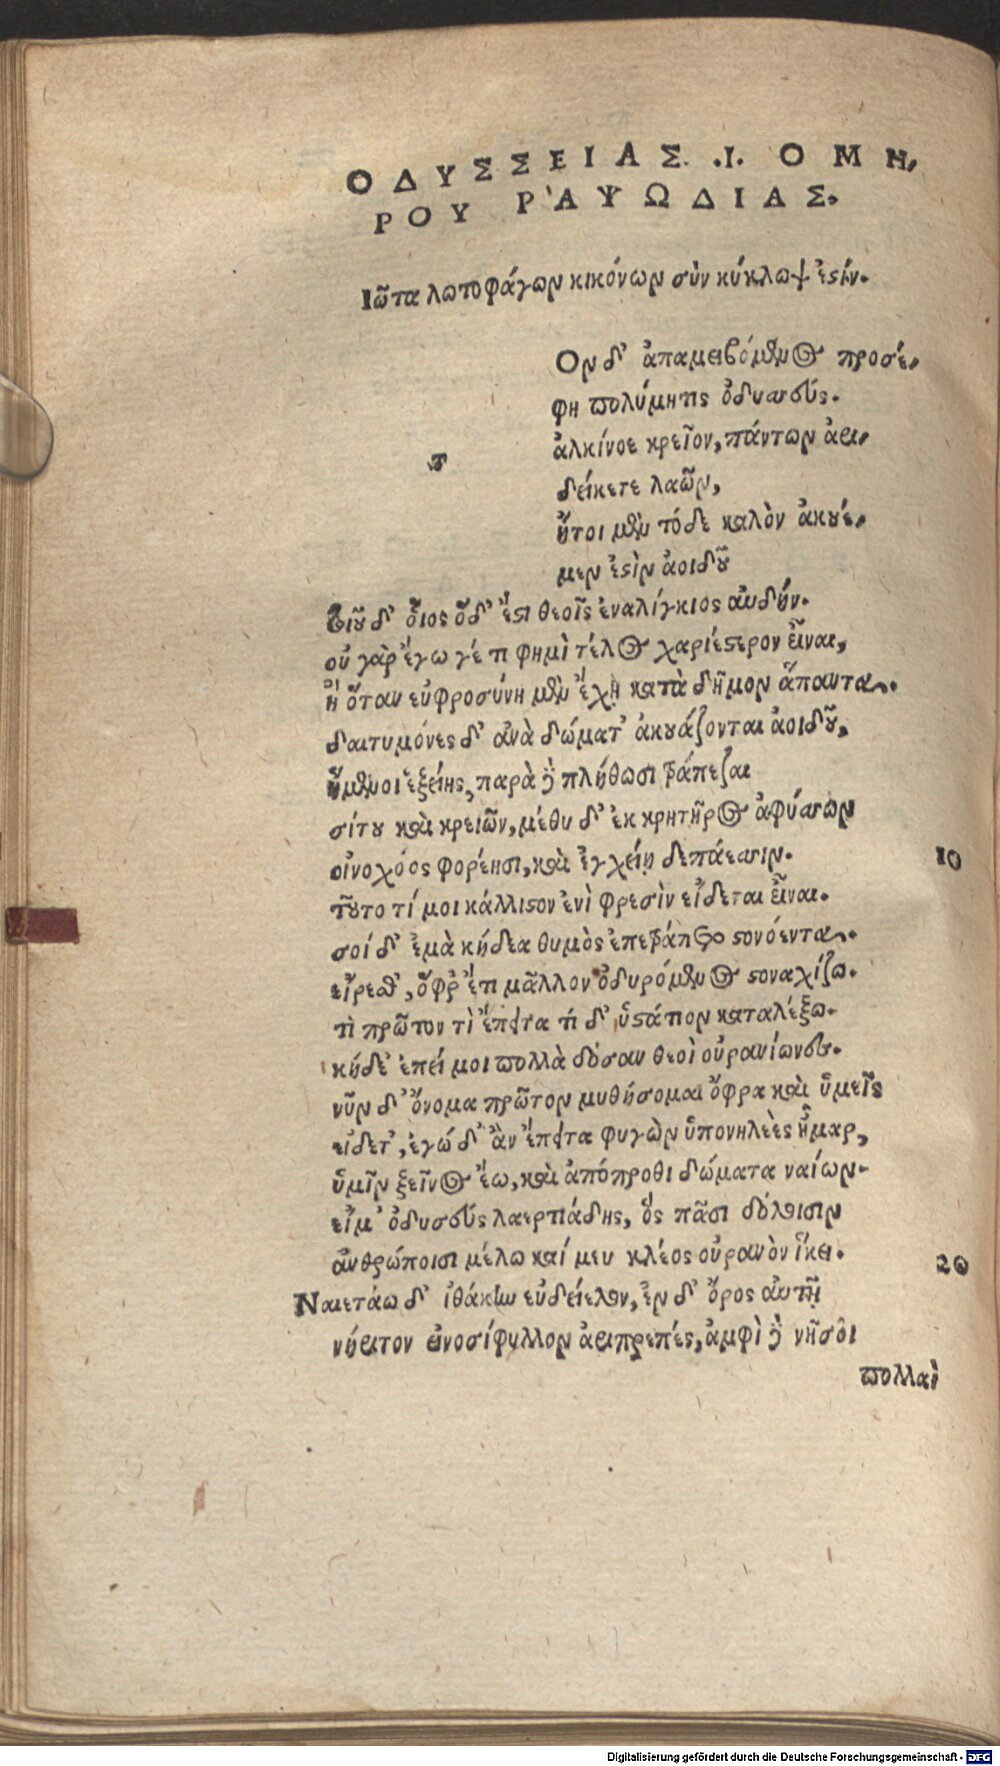 ΟΔΥΣΣΕΙΑΣ .Ι. ΟΜΗ,
ΡΟΥ Ρ᾽ΑΨΩΔΙΑΣ.
Ιῶτα λωτοφάγων κικόνων σὺν κύκλωψ ἐστίν.
Ον δ᾽ ἀπαμειβόμενος προσέ,
φη πολύμητις ὀδυσσεύς.
ἀλκίνοε κρεῖον, πάντων ἀρι,
τ
δείκετε λαῶν,
ἤτοι μὲν τόδε καλὸν ἀκουέ,
μεν ἐστὶν ἀοιδοῦ
τοιοῦδ᾽ οἷος ὅδ᾽ ἔστι θεοῖς ἐναλίγκιος αὐδήν.
οὐ γὰρ ἔγω γέ τι φημὶ τέλος χαριέστερον εἶναι,
ἢ ὅταν εὐφροσύνη μὲν ἔχῃ κατὰ δῆμον ἅπαντα.
δαιτυμόνες δ᾽ ἀνὰ δώματ᾽ ἀκουάζονται ἀοιδοῦ,
ἥμενοι ἑξείης, παρὰ δὲ πλήθωσι τράπεζαι
σίτου καὶ κρειῶν, μέθυ δ᾽ ἐκ κρητῆρος ἀφύσσων
οἰνοχόος φορέησι, καὶ ἐγχείῃ δεπάεσσιν.
10
τοῦτο τί μοι κάλλιστον ἐνὶ φρεσὶν εἴδεται εἶναι.
σοί δ᾽ ἐμὰ κήδεα θυμὸς ἐπετράπετο στονόεντα.
εἴρεσθ᾽, ὄφρ᾽ ἔτι μᾶλλον ὀδυρόμενος στοναχίζω.
τὶ πρῶτον τὶ ἔπειτα τί δ᾽ ὑστάτιον καταλέξω.
κήδε᾽ ἐπεί μοι πολλὰ δόσαν θεοὶ οὐρανίωνες.
νῦν δ᾽ ὄνομα πρῶτον μυθήσομαι ὄφρα καὶ ὑμεῖς
εἴδετ᾽, ἐγώ δ᾽ ἂν ἔπειτα φυγὼν ὑπονηλεὲς ἦμαρ,
ὑμῖν ξεῖνος ἔω, καὶ ἀπόπροθι δώματα ναίων.
εἴμ᾽ ὀδυσσεύς λαερτιάδης, ὅς πᾶσι δόλοισιν
ἀνθρώποισι μέλω καί μευ κλέος οὐρανὸν ἵκει.
20
Ναιετάω δ᾽ ἰθάκην εὐδείελον, ἐν δ᾽ ὄρος αὐτῇ
νήριτον εἰνοσίφυλλον ἀριπρεπές, ἀμφὶ δὲ νῆσοι
πολλαὶ
Digitalisierung gefördert durch die Deutsche Forschungsgemeinschaft - DFG